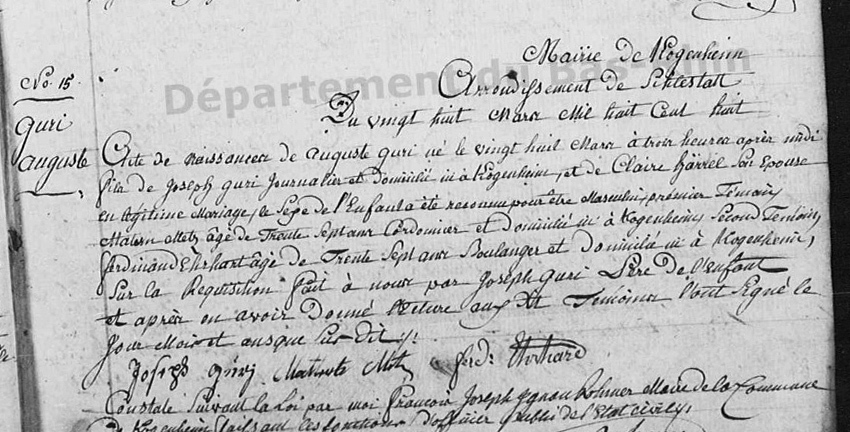 Mairie de Kogenheim
Département du Bas-Rhin
Arrondissement de Schlestatt
Du vingt huit Mars Mil huit Cent huit
No. 15.
Guri
Auguste
Acte de Naissances de Auguste Guri né le vingt huit Mars à trois heures après midi
fils de Joseph Guri Journalier et Domicilié à Kogenheim, et de Claire Son Epouse
en légitime Mariage, le Sexe de l'Enfant a été reconnu pour être Masculin, premier Témoin
Matern Metz âgé de Trente Sept ans Cordonnier et domicilié à Kogenheim, Second Temoin,
ferdinand Ehrhart âgé de Trente Sept ans Boulanger et domicilié à Kogenheim,
Sur la Requisition fait à nous par Joseph Guri Père de l'enfant
et après en avoir Donné lecture aux dit Temoins l'ont Signé le
Jour Mois et ans que Sus dit
Joseph Metz ferd: Ehrhard
Constaté Suivant la Loi par moi François Joseph Ignace Rohmer Maire de la Commune
de Kogenheim faisant les fonctions d'officier public de l'Etat civil,